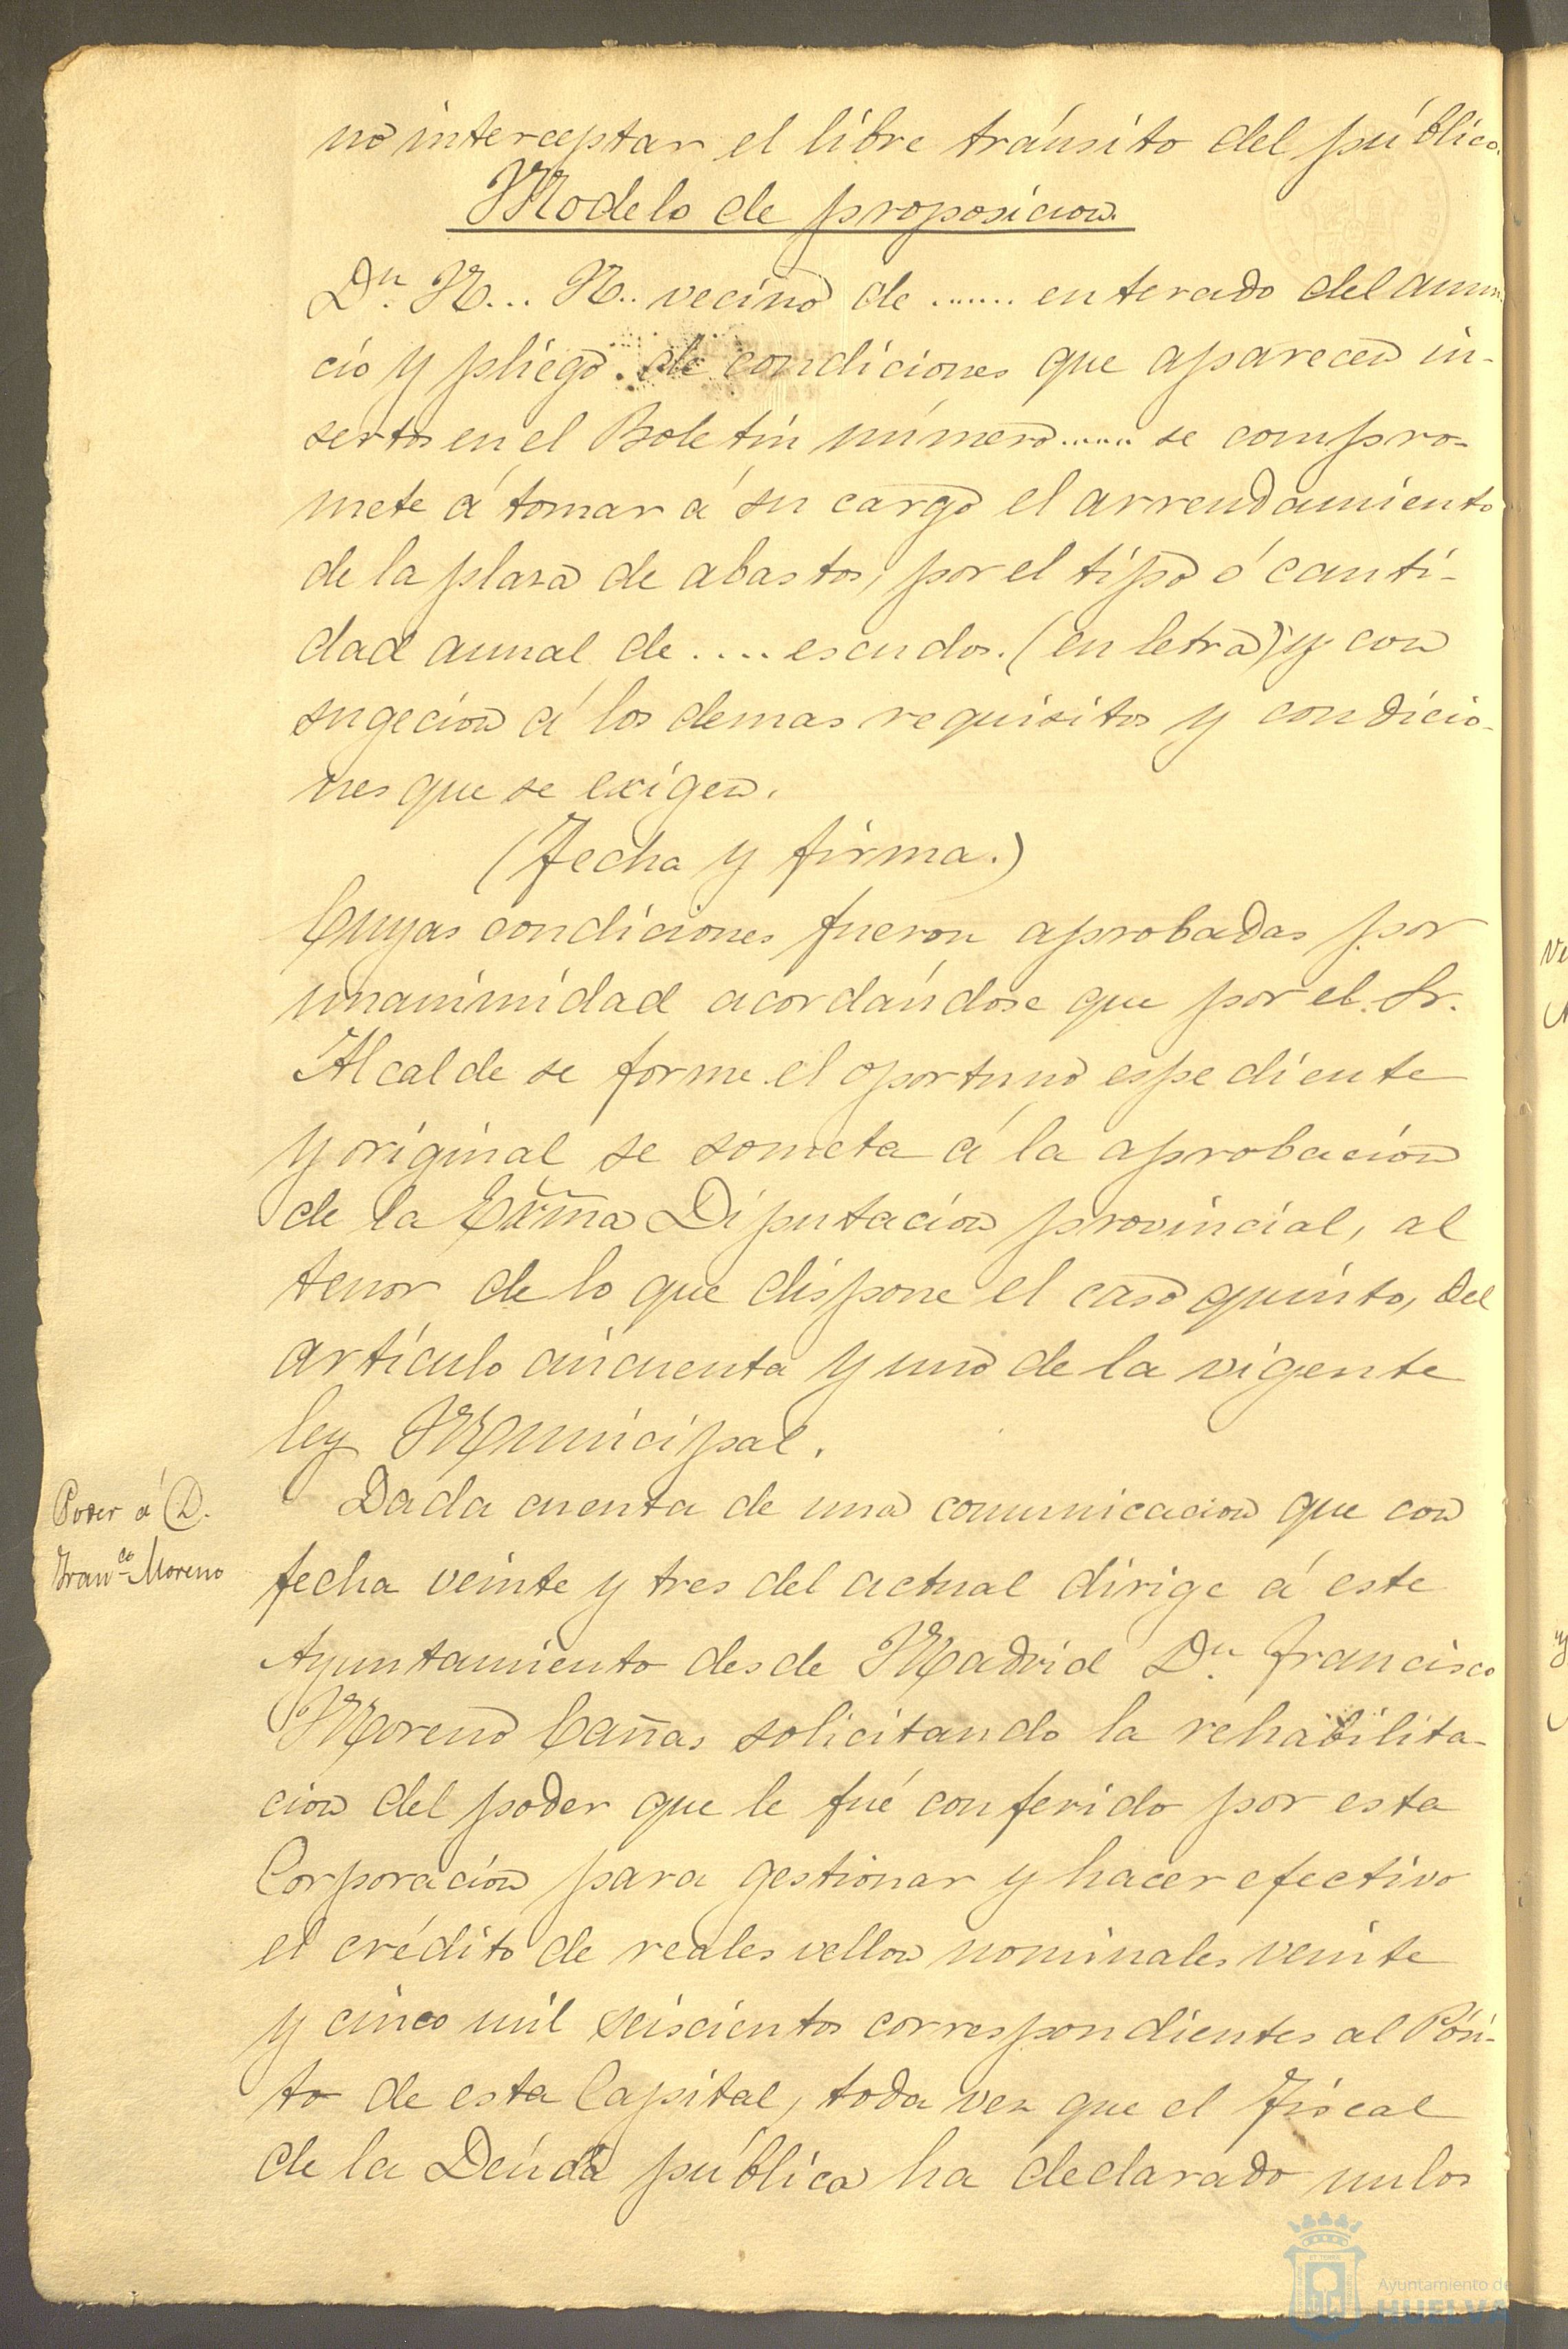 no interceptar el libre tránsito del público.
Modelo de proposicion.
Dn. N... N.. vecino de ....... enterado del anun
cio y pliego de condiciones que aparecen in-
sertos en el Boletin número...... se compro-
mete á tomar á su cargo el arrendamiento
de la plaza de abastos, por el tipo ó canti-
dad anual de .... escudos. (en letra) y con
sugecion á los demas requisitos y condicio-
nes que se exigen.
(Fecha y firma.)
Cuyas condiciones fueron aprobadas por
unanimidad acordándose que por el Sr.
Alcalde se forme el oportuno espediente
y original se someta á la aprobacion
de la Exma Diputacion provincial, al
tenor de lo que dispone el caso quinto, del
artículo cincuenta y uno de la vigente
ley Municipal.
Poder á D.
Franco Moreno
Dada cuenta de una comunicacion que con
fecha veinte y tres del actual dirige á este
Ayuntamiento desde Madrid Dn. Francisco
Moreno Cañas solicitando la rehabilita-
cion del poder que le fué conferido por esta
Corporacion para gestionar y hacer efectivo
el crédito de reales vellon nominales veinte
y cinco mil seiscientos correspondientes al Pósi-
to de esta Capital, toda vez que el Fiscal
de la Deuda pública ha declarado nulos
Ayuntamiento de
HUELVA